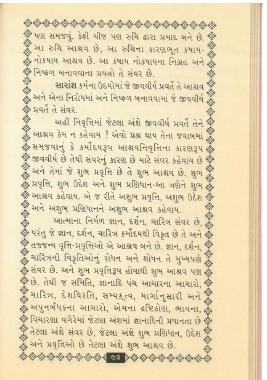 પણ સમજવું. કેફી ચીજ પણ રુચિ દ્વારા પ્રમાદ બને છે.
આ રુચિ આશ્રવ છે, આ રુચિના કારણભૂત કષાય-
નોકષાય આશ્રવ છે. આ કષાય નોકષાયના નિગ્રહ અને
નિષ્ફળ બનાવવાના પ્રયત્નો તે સંવર છે.
સારાંશ કર્મના ઉદયોમાં જે જીવવીર્ય પ્રવર્તે તે આશ્રવ
અને એના નિરોધમાં અને નિષ્ફળ બનાવવામાં જે જીવવીર્ય
પ્રવર્તે તે સંવર.
અહીં નિવૃત્તિમાં જેટલા અંશે જીવવીર્ય પ્રવર્તે તેને
આશ્રવ કેમ ન કહેવાય ? એવો પ્રશ્ન થાય તેના જવાબમાં
સમજવાનું કે કર્મોદયરૂપ આશ્રવનિવૃત્તિના કારણરૂપ
જીવવીર્ય છે તેથી સંવરનું કારણ છે માટે સંવર કહેવાય છે
અને તેમાં જે શુભ પ્રવૃત્તિ છે તે શુભ આશ્રવ છે. શુભ
પ્રવૃત્તિ, શુભ ઉદેશ અને શુભ પ્રણિધાન-આ ત્રણેને શુભ
આશ્રવ કહેવાય. એ જ રીતે અશુભ પ્રવૃત્તિ, અશુભ ઉદેશ
અને અશુભ પ્રણિધાનને અશુભ આશ્રવ કહેવાય.
આત્માના નિર્મળ જ્ઞાન, દર્શન, ચારિત્ર સંવર છે.
પરંતુ જે જ્ઞાન, દર્શન, ચારિત્ર કર્મોદયથી વિકૃત છે તે અને
તજ્જન્ય વૃત્તિ-પ્રવૃત્તિઓ એ આશ્રવ બને છે. જ્ઞાન, દર્શન,
ચારિત્રની વિકૃતિઓનું રોધન અને શોધન તે મુખ્યપણે
સંવર છે. અને શુભ પ્રવૃત્તિરૂપ હોવાથી શુભ આશ્રવ પણ
છે. તેથી જ સમિતિ, જ્ઞાનાદિ પંચ આચારના આચારો,
ચારિત્ર, દેશવિરતિ, સમ્યક્ત્વ, માર્ગાનુસારી અને
અપુનર્બંધકના આચારો, એમના દૃષ્ટિકોણ, ભાવના,
વિચારણા વગેરેમાં જેટલા અંશમાં જ્ઞાનાદિની પ્રધાનતા છે
તેટલા અંશે સંવર છે, જેટલા અંશે શુભ પ્રણિધાન, ઉદેશ
અને પ્રવૃત્તિઓ છે તેટલા અંશે શુભ આશ્રવ છે.